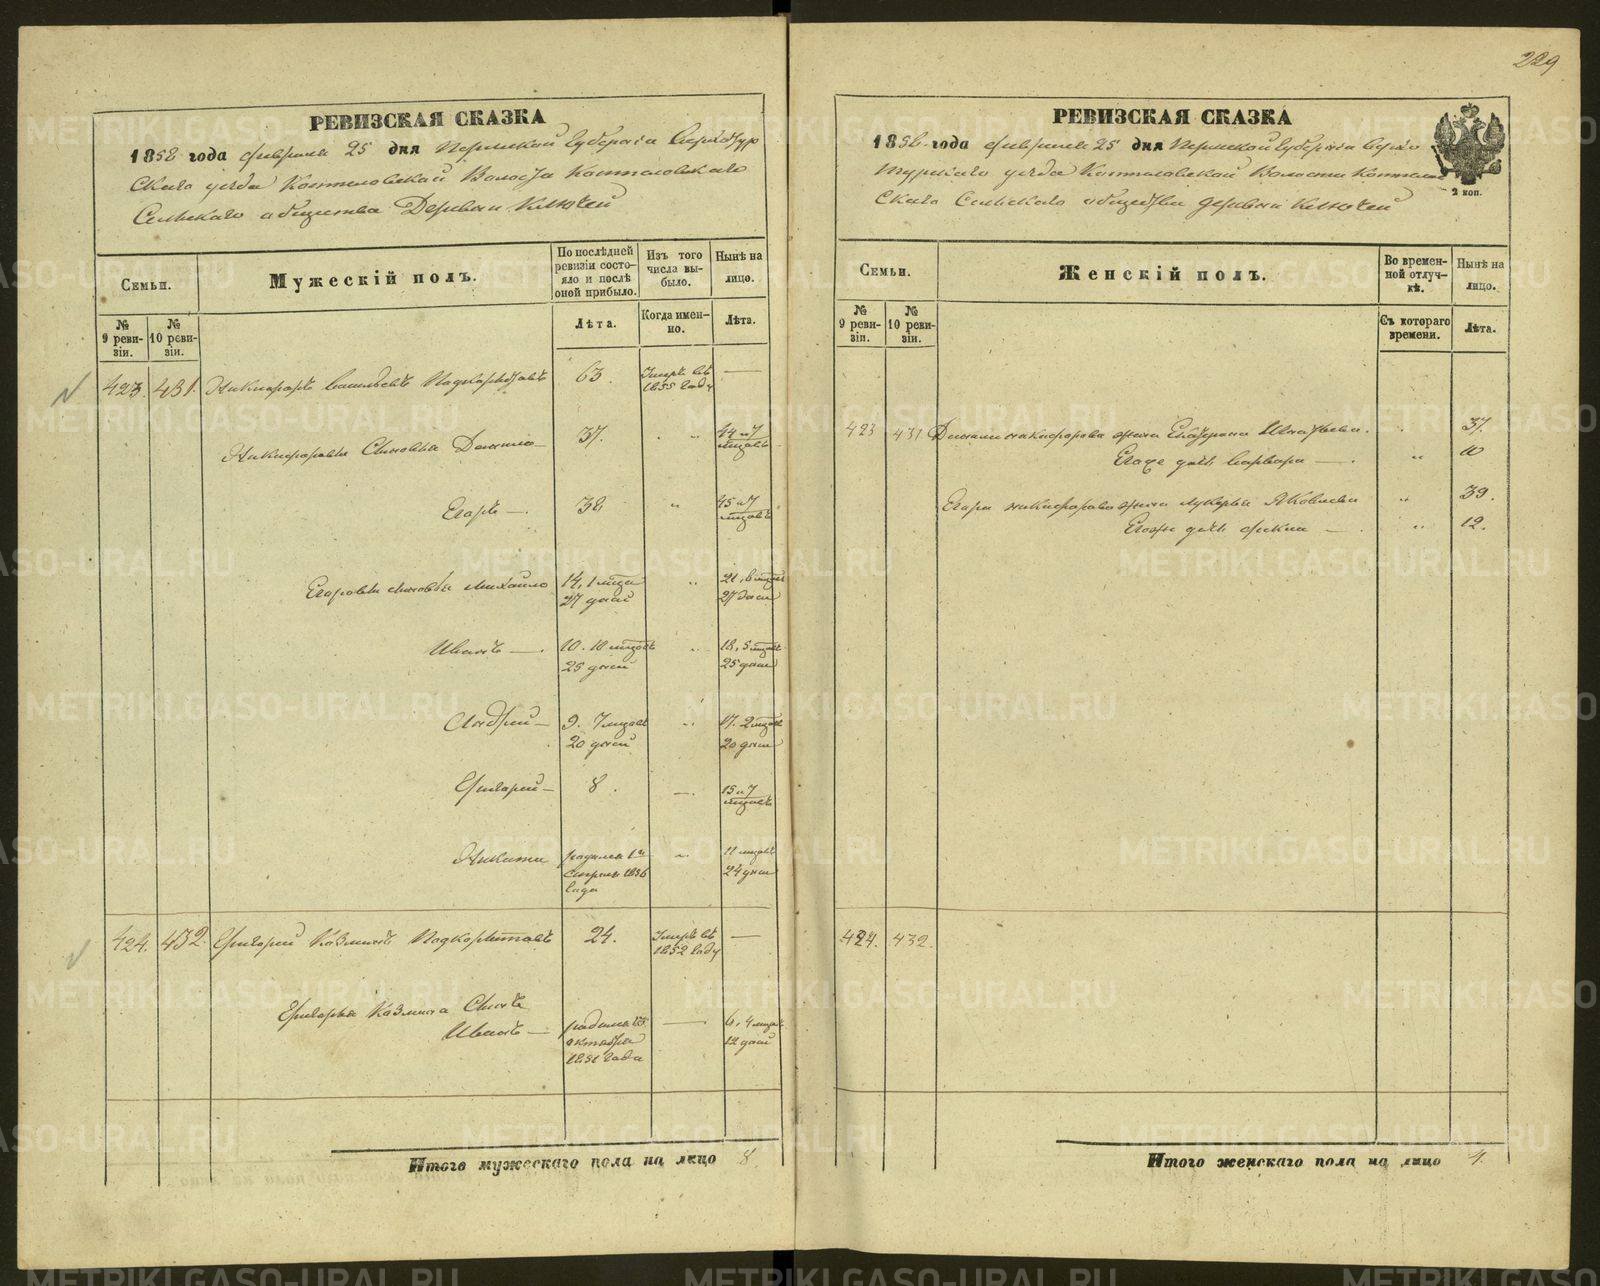 229
РЕВИЗСКАЯ СКАЗКА
1858 года февраля 25 дня Пермской Губернiи Верхотур
скаго уезда Коптеловской Волости Коптеловскаго
Сельскаго общества Деревни Ключей
Семьи.
Мужескiй полъ.
По послѣдней ревизiи состояло и послѣ оной прибыло.
Изъ того числа выбыло.
Нынѣ на лицо.
№ 9 ревизiи.
№ 10 ревизiи.
Лѣта.
Когда именно.
Лѣта.
423. 431. Никифоръ Васильевъ Подкорытовъ 63. Умеръ въ 1855 году —
Никифоровы Сыновья Данило — 37. " " 44 и 7 мѣсяцовъ
Егоръ — 38 " 45 и 7 мѣсяцовъ
Егоровы сыновья Михайло 14, 1 мѣсяца 27 дней " 21, 8 мѣсяцовъ 27 дней
Иванъ — 10. 10 мѣсяцовъ 25 дней " 18, 5 мѣсяцовъ 25 дней
Андрей — 9. 7 мѣсяцовъ 20 дней " 17. 2 мѣсяцовъ 20 дней
Григорий — 8. — 15 и 7 мѣсяцовъ
Никита родился 1го 1856 года " 11 мѣсяцовъ 24 дни
424. 432. Григорий Козминъ Подкорытовъ 24. Умеръ въ 1852 году —
Григорья Козмина Сынъ
Иванъ — родился 13 октября 1851 года — 6, 4 мѣсяца 12 дней
Итого мужескаго пола на лицо 8
РЕВИЗСКАЯ СКАЗКА
1858 года февраля 25 дня Пермской Губернiи Верхо
турскаго уезда Коптеловской Волости Коптелов
скаго Сельскаго общества деревни Ключей
2 коп.
Семьи.
Женскiй полъ.
Во временной отлучкѣ.
Нынѣ на лицо.
№ 9 ревизiи.
№ 10 ревизiи.
Съ котораго времени.
Лѣта.
423 431 Данила Никифорова жена Екатерина " 37.
Егоже дочь Варвара — " 10
Егора Никифорова жена Лукерья Яковлева " 39.
Егоже дочь Фекла — " 12.
424. 432.
Итого женскаго пола на лицо 4.
METRIKI.GASO-URAL.RU